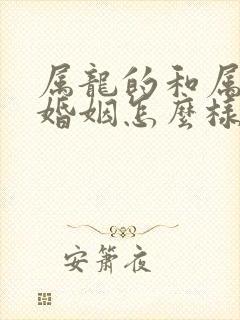 属龍的和属
婚姻怎麼樣
安箫夜